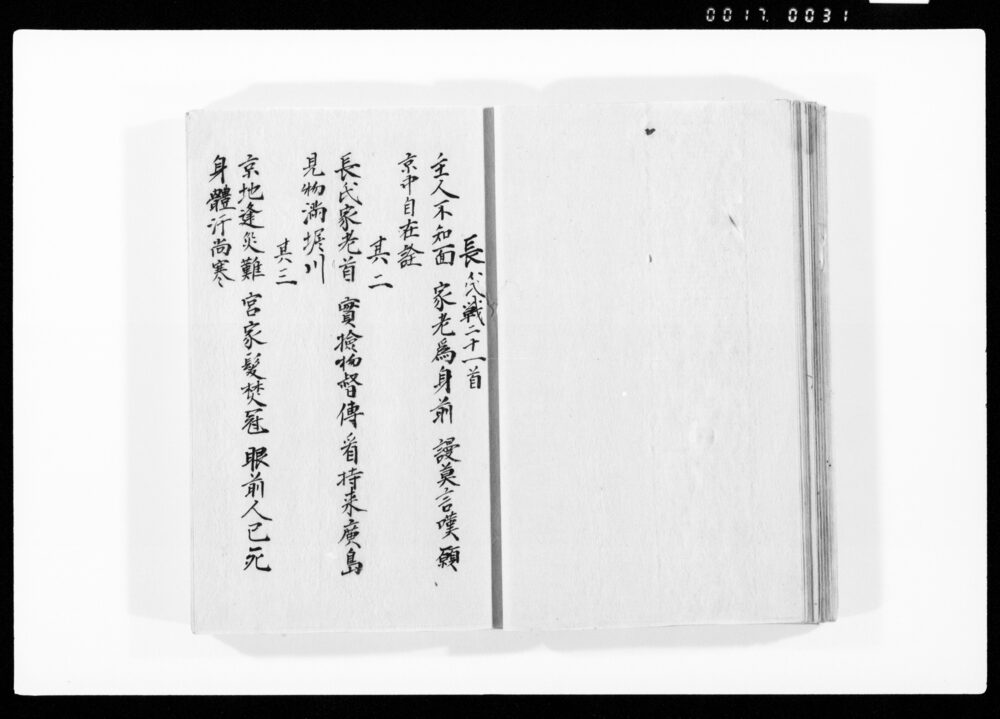 0017. 0031
長代戦二十一首
主人不知面 家老爲身前 謾莫言嘆願
京中自在詮
其二
長氏家老首 實撿物督傳 看持来廣島
見物満堀川
其三
京地逢災難 宮家髪焚冠 眼前人已死
身體汗尚寒